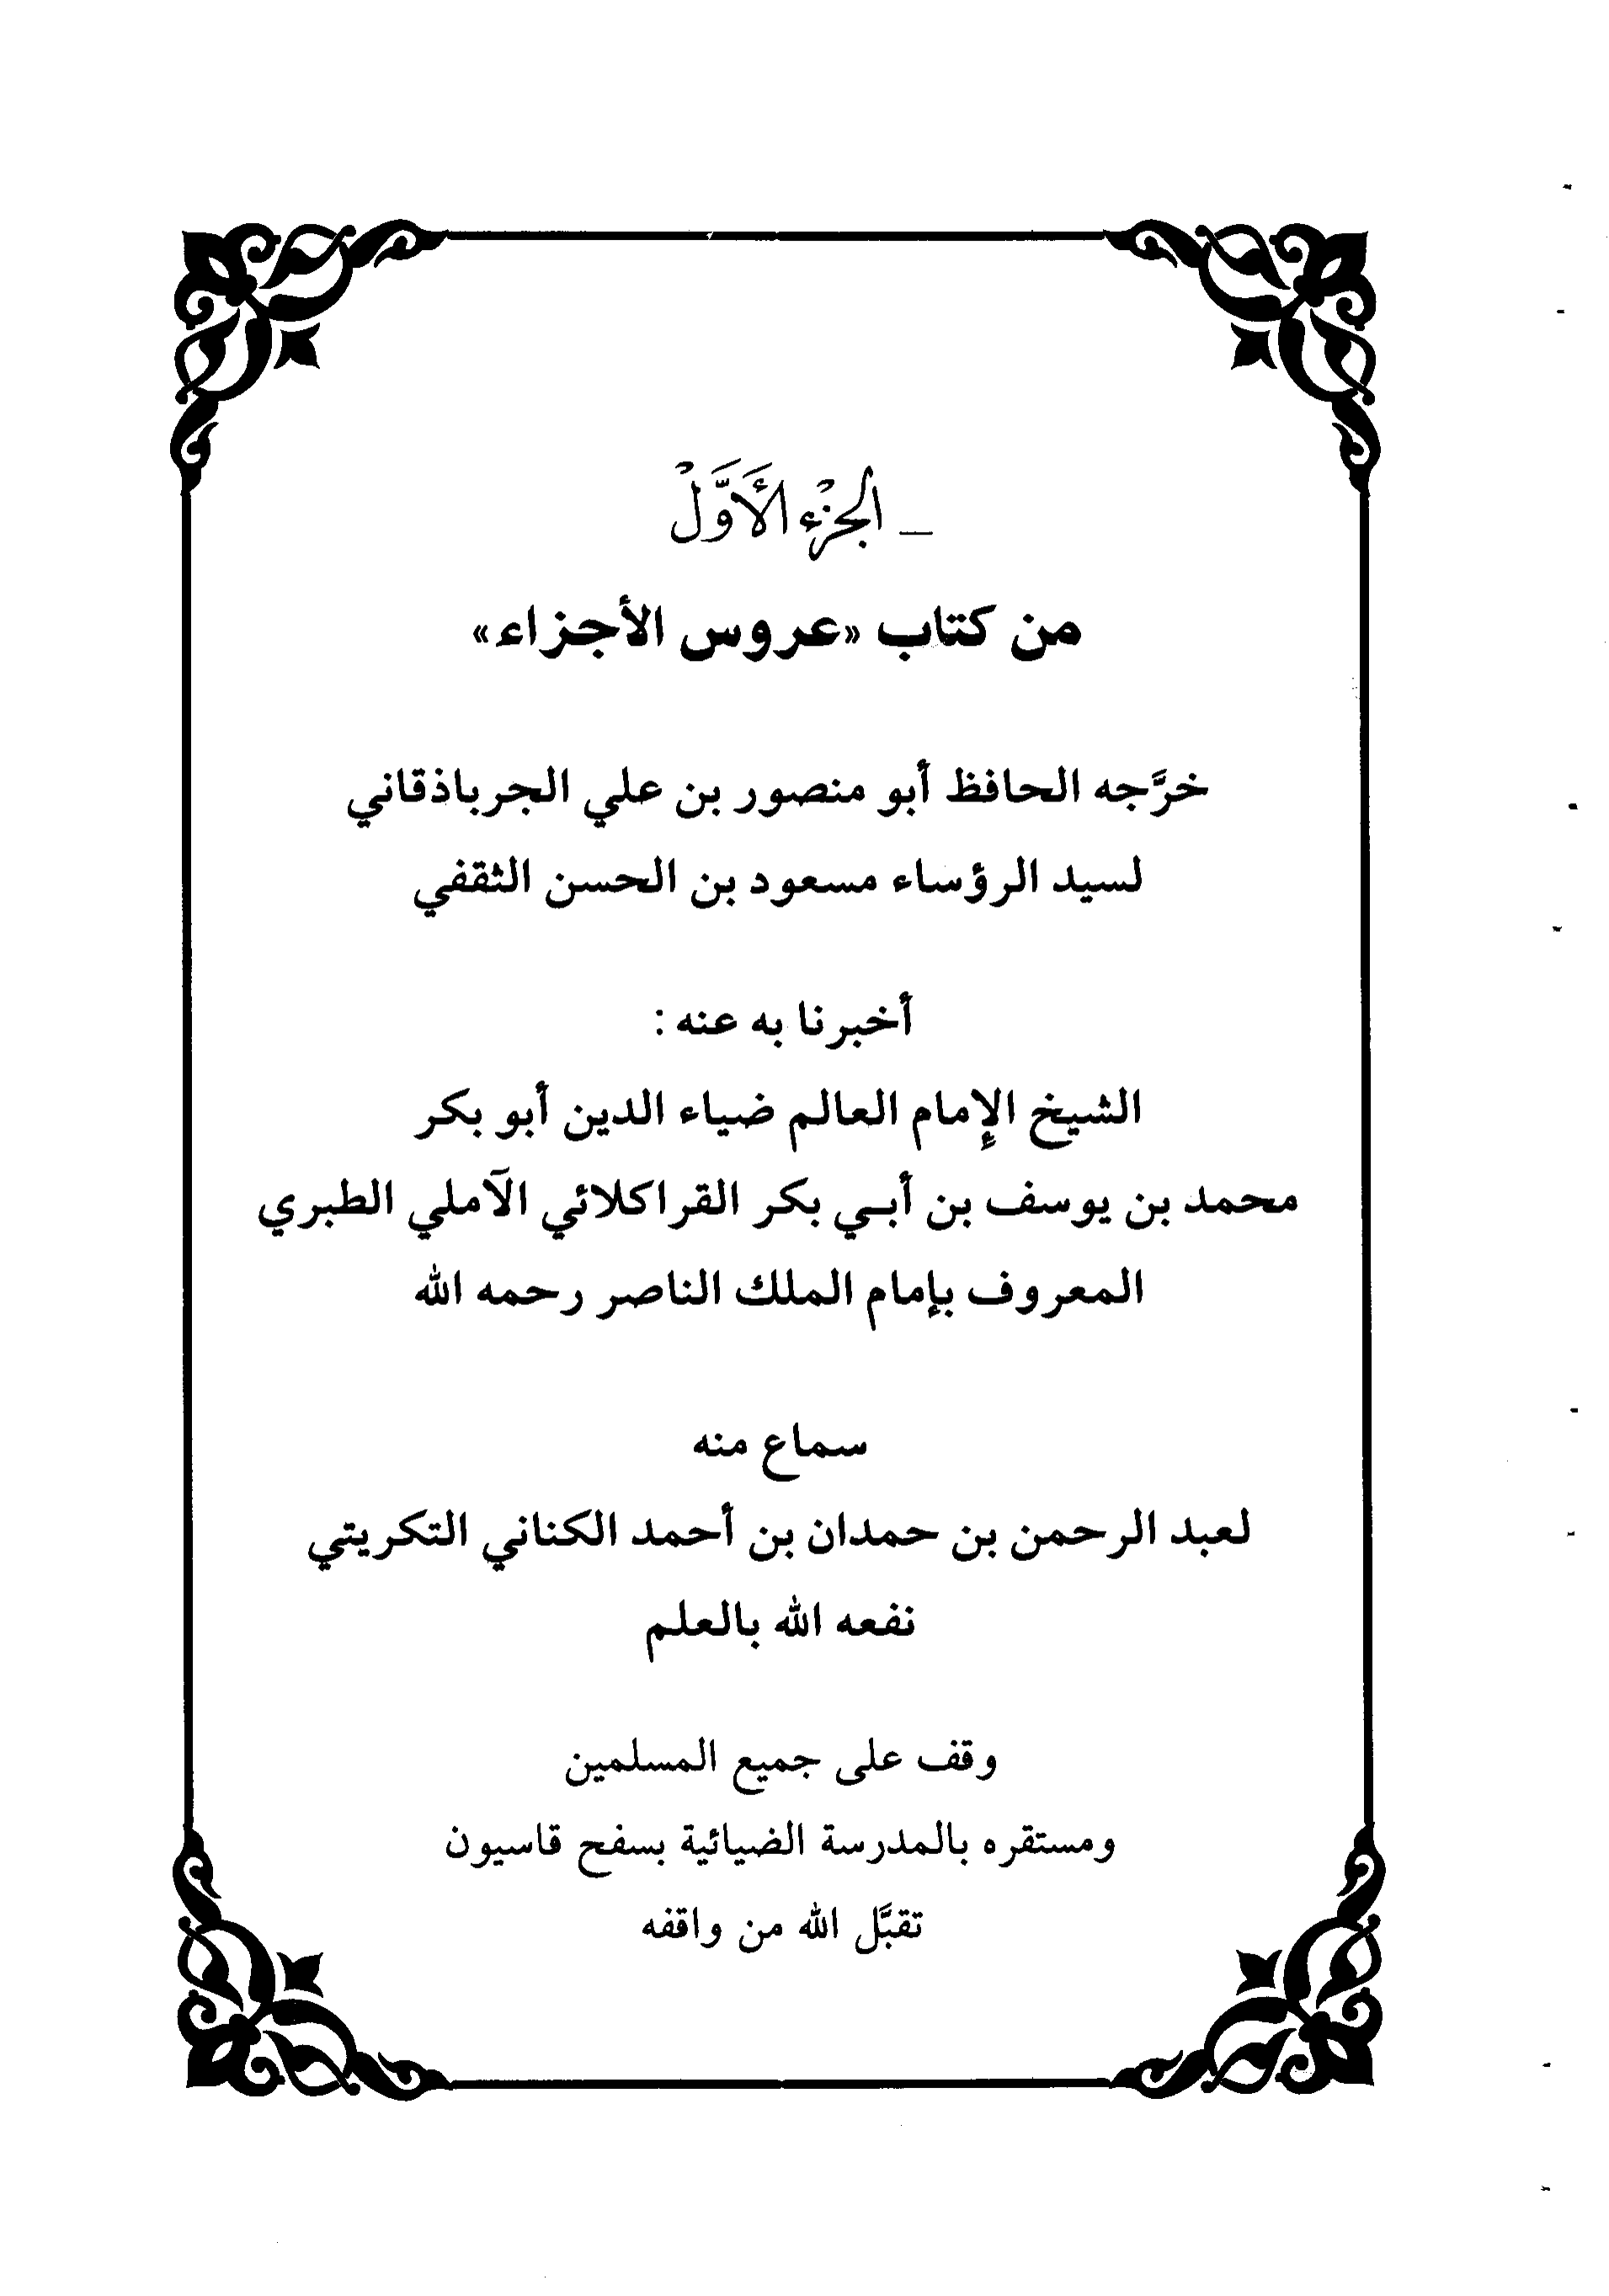 ـ الجُزْءُ الأَوَّلُ
من كتاب «عروس الأجزاء»
خرَّجه الحافظ أبو منصور بن علي الجرباذقاني
لسيد الرؤساء مسعود بن الحسن الثقفي
أخبرنا به عنه :
الشيخ الإمام العالم ضياء الدين أبو بكر
محمد بن يوسف بن أبـي بكر القراكلائي الآملي الطبري
المعروف بإمام الملك الناصر رحمه الله
سماع منه
لعبد الرحمن بن حمدان بن أحمد الكناني التكريتي
نفعه الله بالعلم
وقف على جميع المسلمين
ومستقره بالمدرسة الضيائية بسفح قاسيون
تقبَّل الله من واقفه